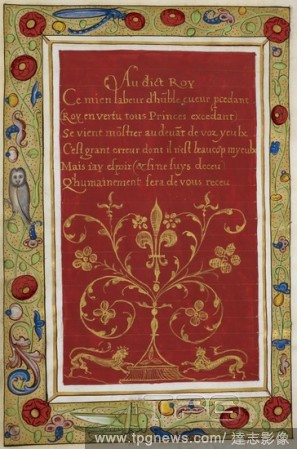 Au dict Roy
Ce mien labeur d'huble cueur pcedant
Roy en vertu tous Princes excedant
Se vient mostrer au devat de voz yeulx
C'est grant erreur dont il n'est beaucop myeulx
Mais i'ay espoir (& si ne suys deceu)
Q'humainement sera de vous receu
www.tpgnews.com/達志影像